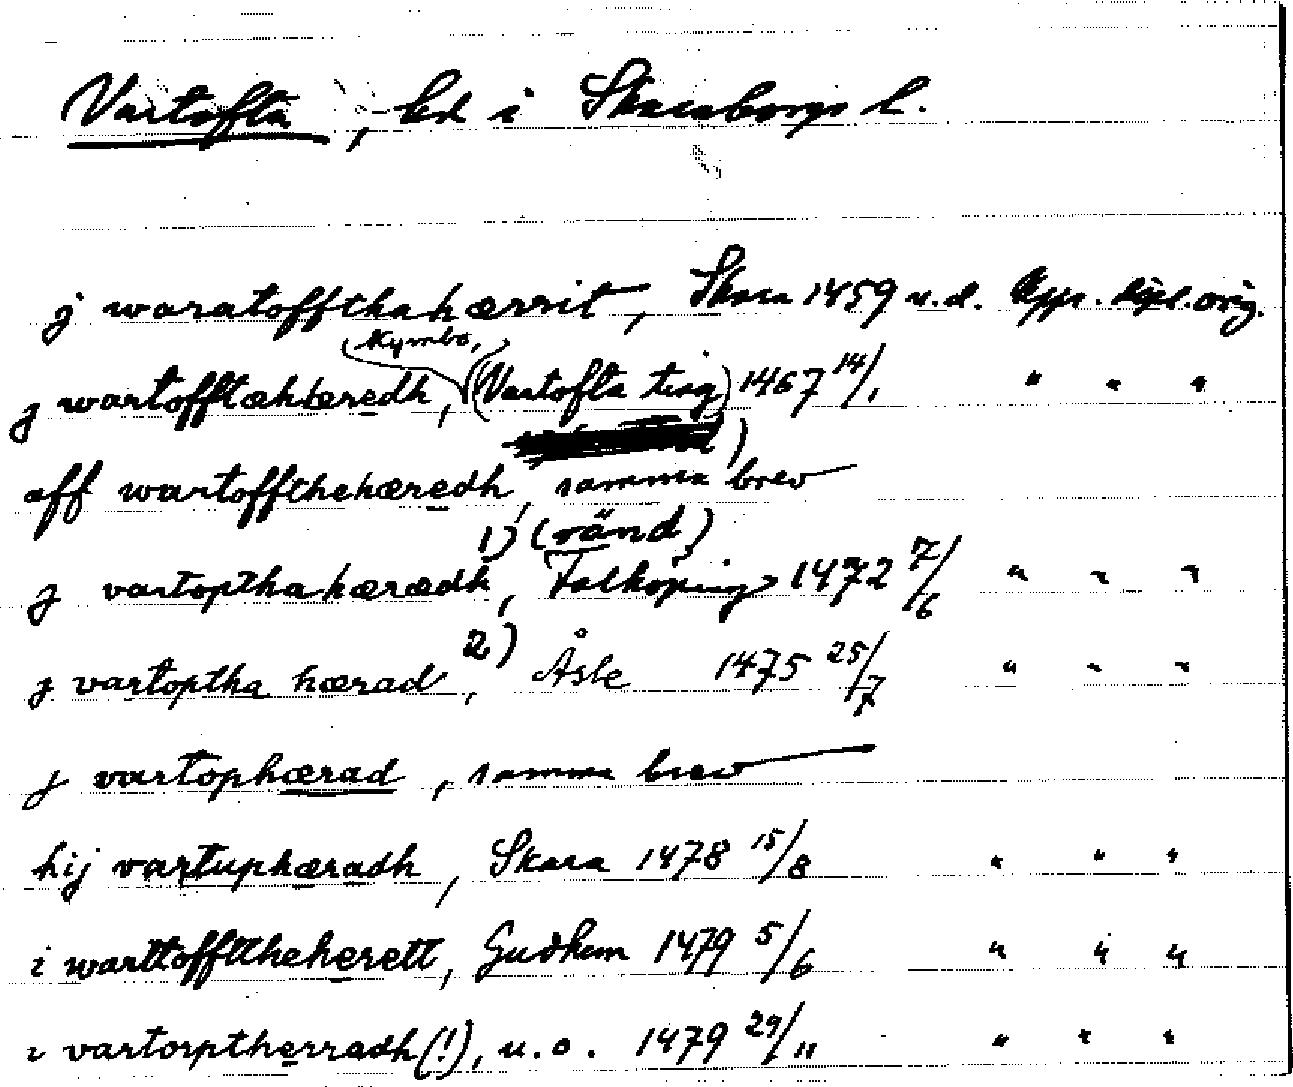 Vartofta, hd i Skaraborgs l.
j waratofftha hærrit, Skara 1459 u.d. Uppr. dipl. orig.
Kymbo,
j wartofftæhæredh, (Vartofta ting) 1467 14/1 " " "
aff wartoffthehæredh, samma brev
1) (vänd)
j vartoptha hærædh, Falköping 1472 7/6 " " "
j vartoptha hærad 2), Åsle 1475 25/7 " " "
j vartophærad, samma brev
hij vartuphæradh, Skara 1478 15/8 " " "
i warttoffttheherett, Gudhem 1479 5/6 " " "
i vartorptherradh(!), u.o. 1479 29/11 " " "